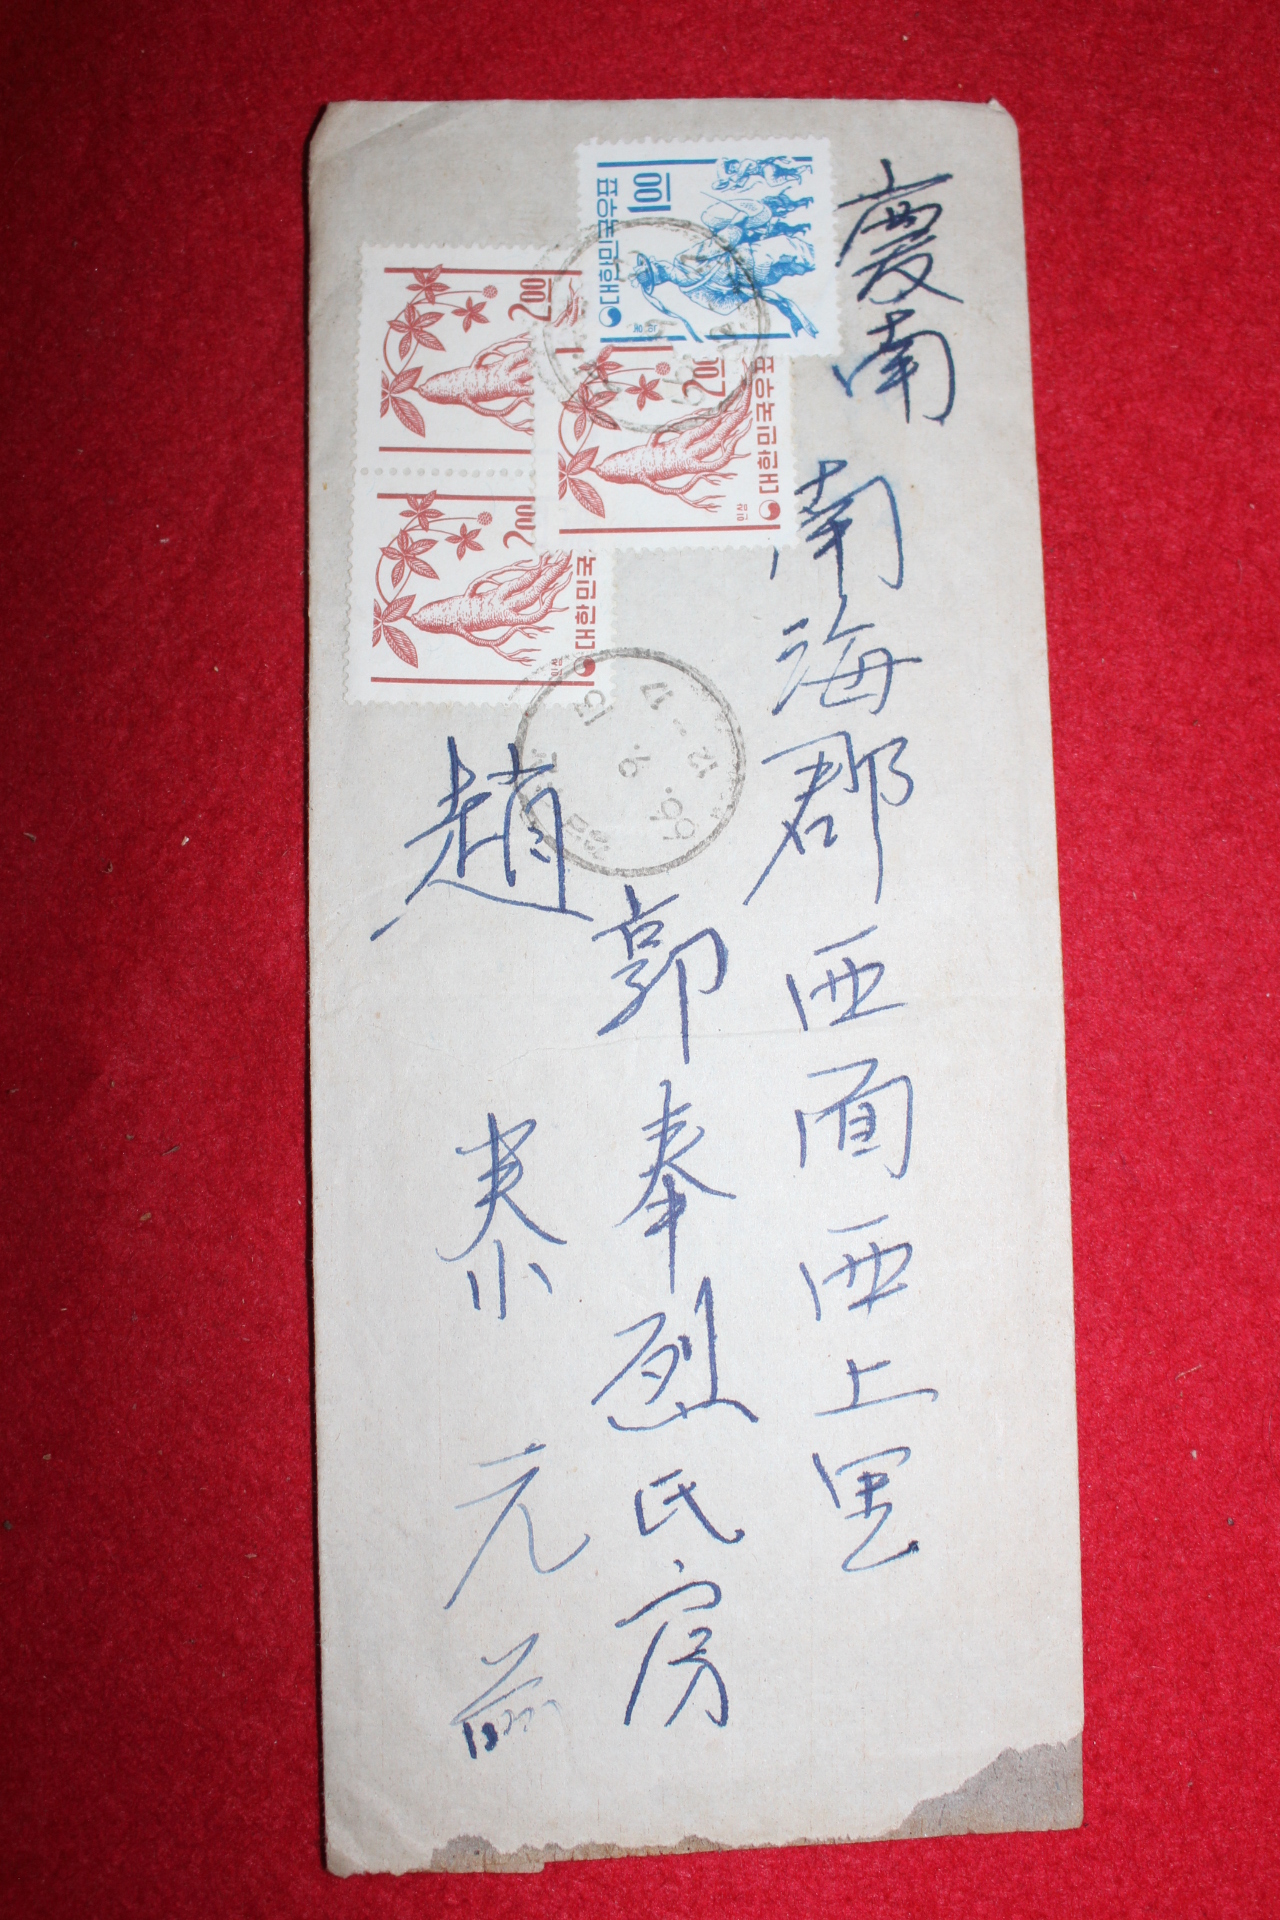 慶南 南海郡西面西上里
郭奉烈氏房
趙泰元 前
1.00
대한민국우표
농악
2.00
2.00
대한민국
인삼
2.00
대한민국우표
인삼
66.
6